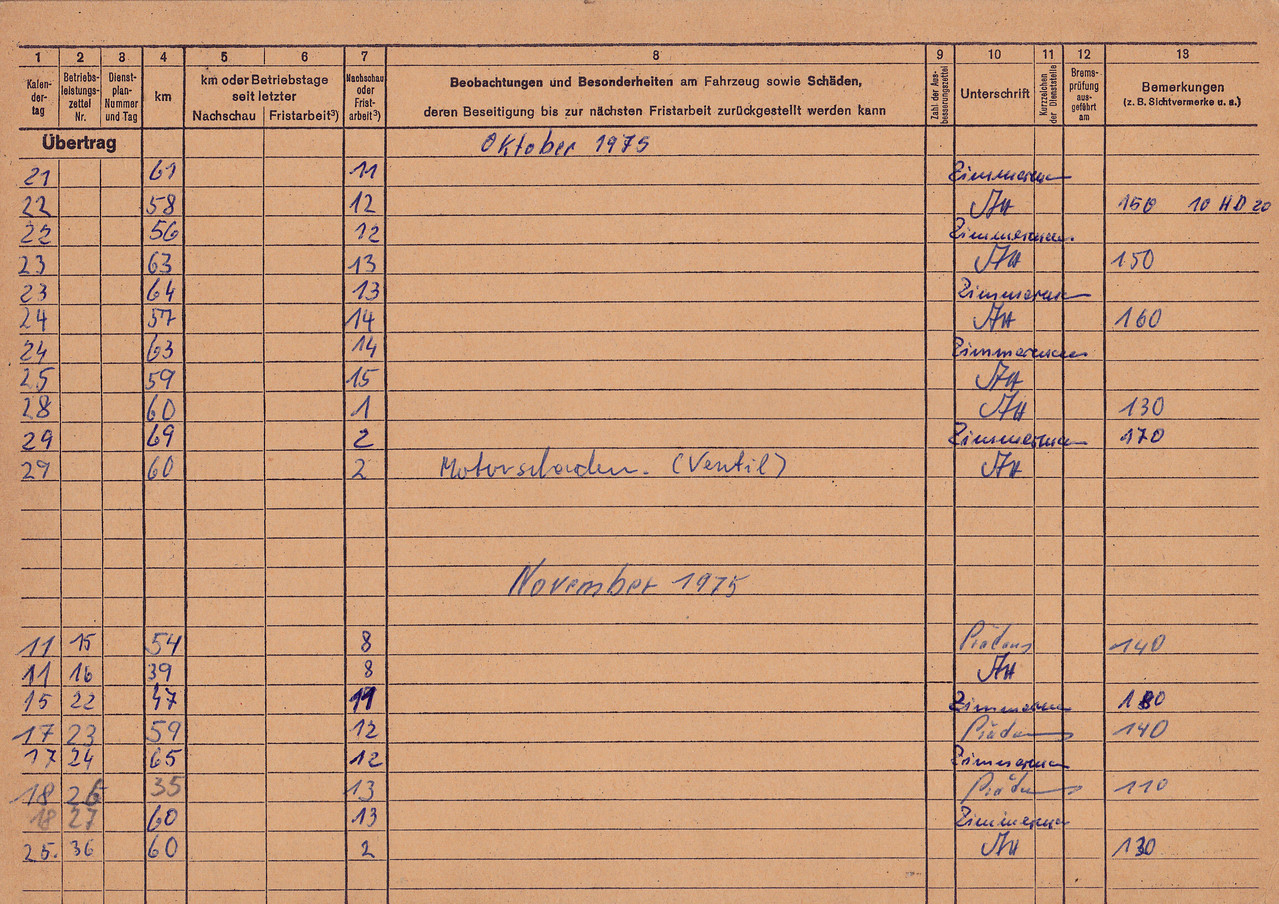 1 2 3 4 5 6 7 8 9 10 11 12 13
Kalen-der-tag Betriebs-leistungs-zettel Nr. Dienst-plan-Nummer und Tag km km oder Betriebstage seit letzter Nachschau Fristarbeit³) Nachschau oder Frist-arbeit³) Beobachtungen und Besonderheiten am Fahrzeug sowie Schäden, deren Beseitigung bis zur nächsten Fristarbeit zurückgestellt werden kann Zahl der Aus-besserungszettel Unterschrift Kurzzeichen der Dienststelle Brems-prüfung aus-geführt am Bemerkungen (z. B. Sichtvermerke u. a.)
Übertrag Oktober 1975
21 61 11 Zimmermann
22 58 12 150 10 HD 20
22 56 12 Zimmermann
23 63 13 150
23 64 13 Zimmermann
24 57 14 160
24 63 14 Zimmermann
25 59 15
28 60 1 130
29 69 2 Zimmermann 170
29 60 2 Motorschaden. (Ventil)
November 1975
11 15 54 8 140
11 16 39 8
15 22 47 11 Zimmermann 180
17 23 59 12 140
17 24 65 12 Zimmermann
18 26 35 13 110
18 27 60 13 Zimmermann
25. 36 60 2 130